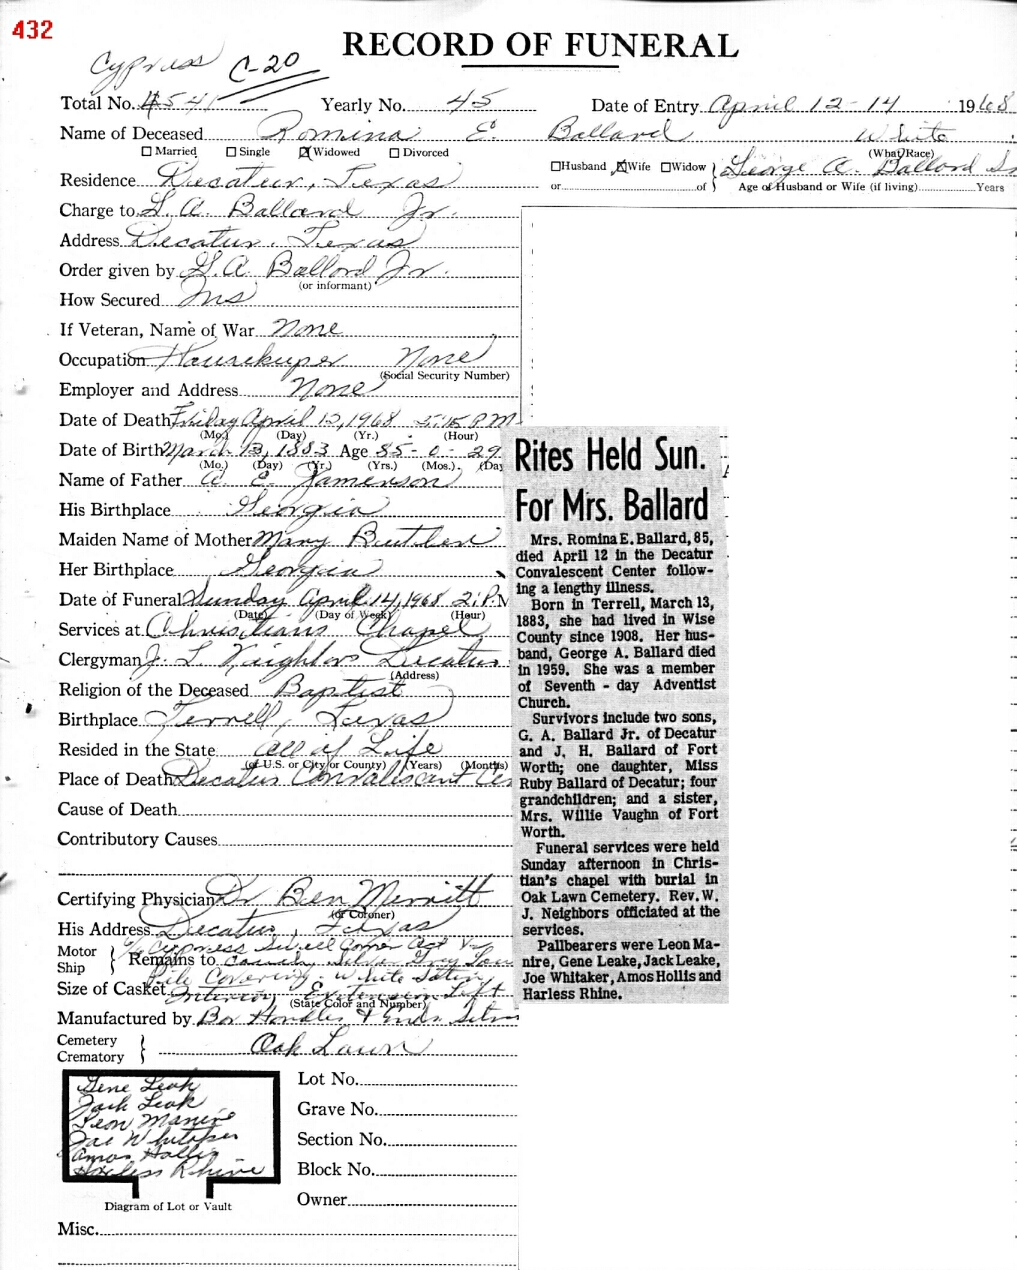 432
RECORD OF FUNERAL
Cypress C-20
Total No. 4541 Yearly No. 45 Date of Entry April 12-14 1968
Name of Deceased Romina E. Ballard White
☐ Married ☐ Single ☒ Widowed ☐ Divorced (What Race)
☐ Husband ☒ Wife ☐ Widow George A. Ballard Sr
or of Age of Husband or Wife (if living) Years
Residence Decatur, Texas
Charge to G. A. Ballard Jr.
Address Decatur, Texas
Order given by G. A. Ballard Jr.
(or informant)
How Secured Ins
If Veteran, Name of War None
Occupation Housekeeper None
(Social Security Number)
Employer and Address None
Date of Death Friday April 12, 1968 5:45 P M
(Mo.) (Day) (Yr.) (Hour)
Date of Birth March 13, 1883 Age 85 - 0 - 29
(Mo.) (Day) (Yr.) (Yrs.) (Mos.) (Day
Name of Father E. Jamerson
His Birthplace Georgia
Maiden Name of Mother Mary Butler
Her Birthplace Georgia
Date of Funeral Sunday April 14, 1968 2: P.M
(Date) (Day of Week) (Hour)
Services at Christians Chapel
Clergyman J. L. Neighbors Decatur
(Address)
Religion of the Deceased Baptist
Birthplace Terrell, Texas
Resided in the State all of Life
(of U.S. or City or County) (Years) (Months)
Place of Death Decatur Convalescant Cen
Cause of Death
Contributory Causes
Certifying Physician Dr Ben Merritt
(or Coroner)
His Address Decatur, Texas
Motor
Ship
Cypress Corner
Remains to Silver Grey
Covering - White Satin
Size of Casket Interior, Extension Lift
(State Color and Number)
Manufactured by Handles & Ends
Cemetery
Crematory
Oak Lawn
Gene Leak
Jack Leak
Leon Manire
Joe Whitaker
Amos Hollis
Harless Rhine
Diagram of Lot or Vault
Lot No.
Grave No.
Section No.
Block No.
Owner
Misc.
Rites Held Sun.
For Mrs. Ballard
Mrs. Romina E. Ballard, 85,
died April 12 in the Decatur
Convalescent Center follow-
ing a lengthy illness.
Born in Terrell, March 13,
1883, she had lived in Wise
County since 1908. Her hus-
band, George A. Ballard died
in 1959. She was a member
of Seventh - day Adventist
Church.
Survivors include two sons,
G. A. Ballard Jr. of Decatur
and J. H. Ballard of Fort
Worth; one daughter, Miss
Ruby Ballard of Decatur; four
grandchildren; and a sister,
Mrs. Willie Vaughn of Fort
Worth.
Funeral services were held
Sunday afternoon in Chris-
tian's chapel with burial in
Oak Lawn Cemetery. Rev. W.
J. Neighbors officiated at the
services.
Pallbearers were Leon Ma-
nire, Gene Leake, Jack Leake,
Joe Whitaker, Amos Hollis and
Harless Rhine.